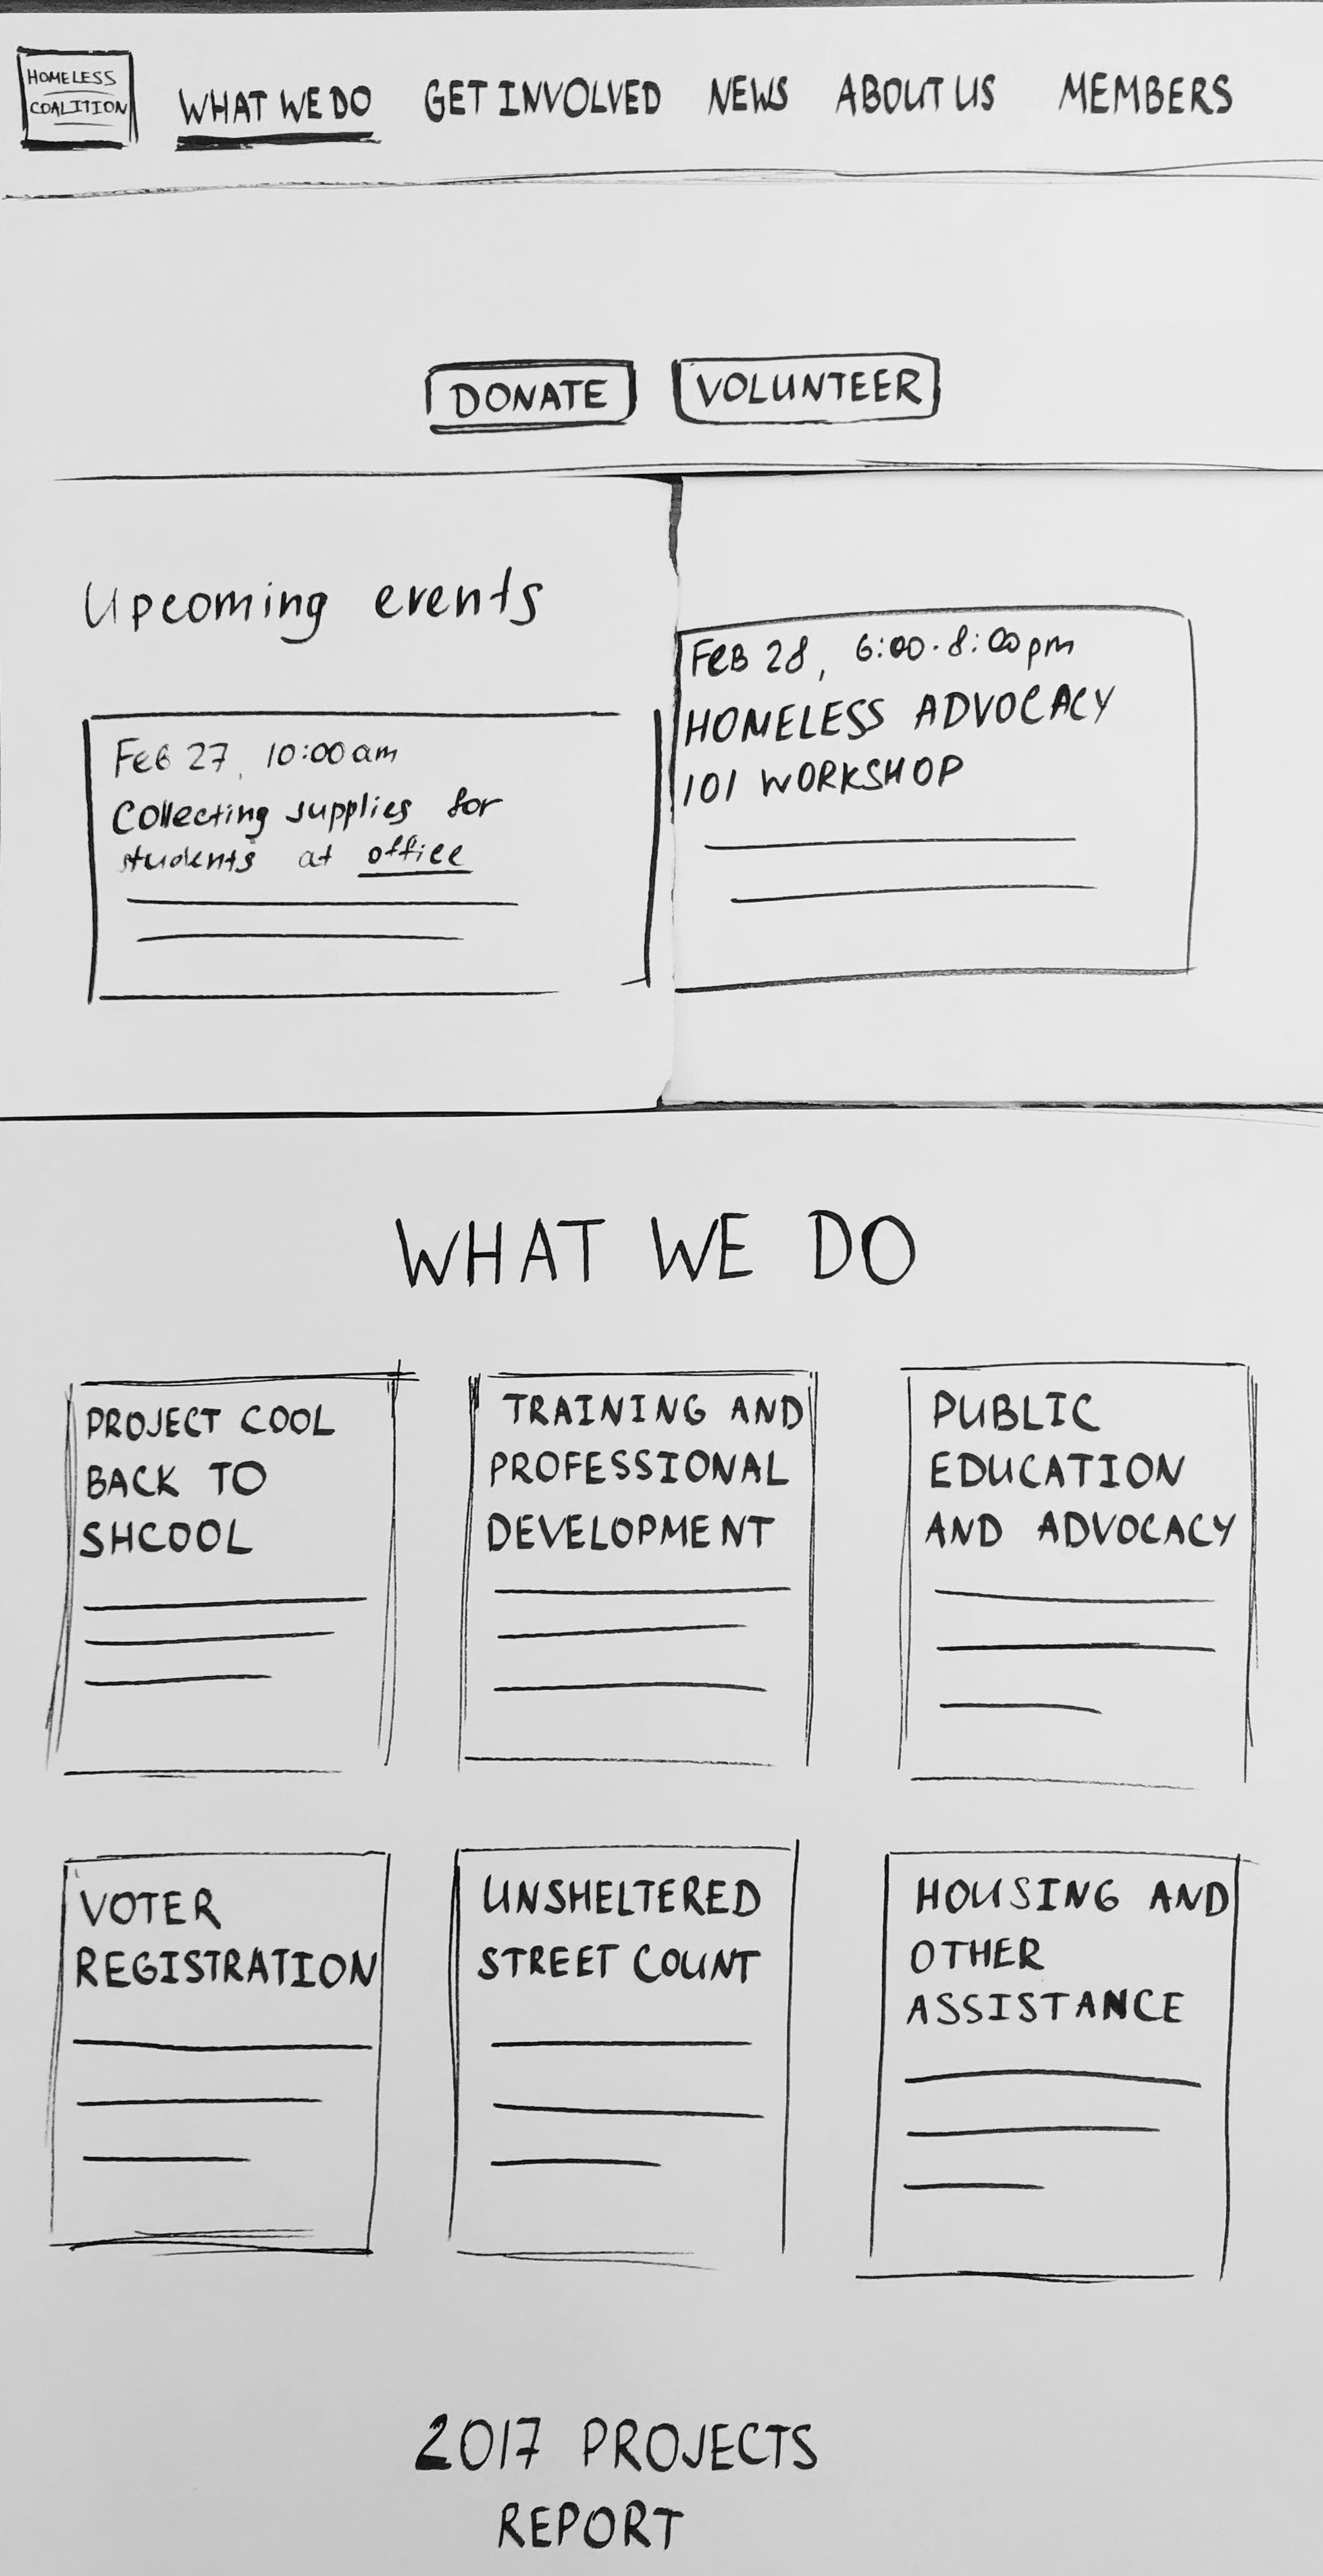 HOMELESS
COALITION
WHAT WE DO GET INVOLVED NEWS ABOUT US MEMBERS
DONATE VOLUNTEER
Upcoming events
Feb 27, 10:00am
Collecting supplies for
students at office
FeB 28, 6:00-8:00pm
HOMELESS ADVOCACY
101 WORKSHOP
WHAT WE DO
PROJECT COOL
BACK TO
SHCOOL
TRAINING AND
PROFESSIONAL
DEVELOPMENT
PUBLIC
EDUCATION
AND ADVOCACY
VOTER
REGISTRATION
UNSHELTERED
STREET COUNT
HOUSING AND
OTHER
ASSISTANCE
2017 PROJECTS
REPORT